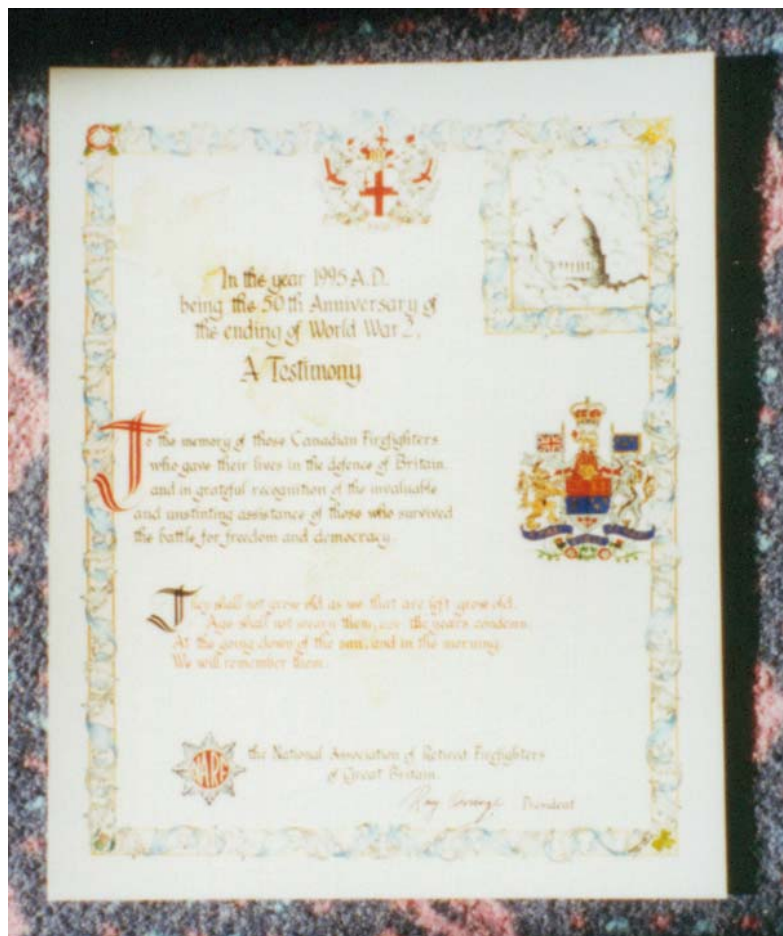 In the year 1995 A.D.
being the 50th Anniversary of
the ending of World War 2,
A Testimony
To the memory of those Canadian Firefighters
who gave their lives in the defence of Britain,
and in grateful recognition of the invaluable
and unstinting assistance of those who survived
the battle for freedom and democracy.
They shall not grow old as we that are left grow old.
Age shall not weary them, nor the years condemn.
At the going down of the sun, and in the morning
We will remember them.
NARF
the National Association of Retired Firefighters
of Great Britain.
Ray President